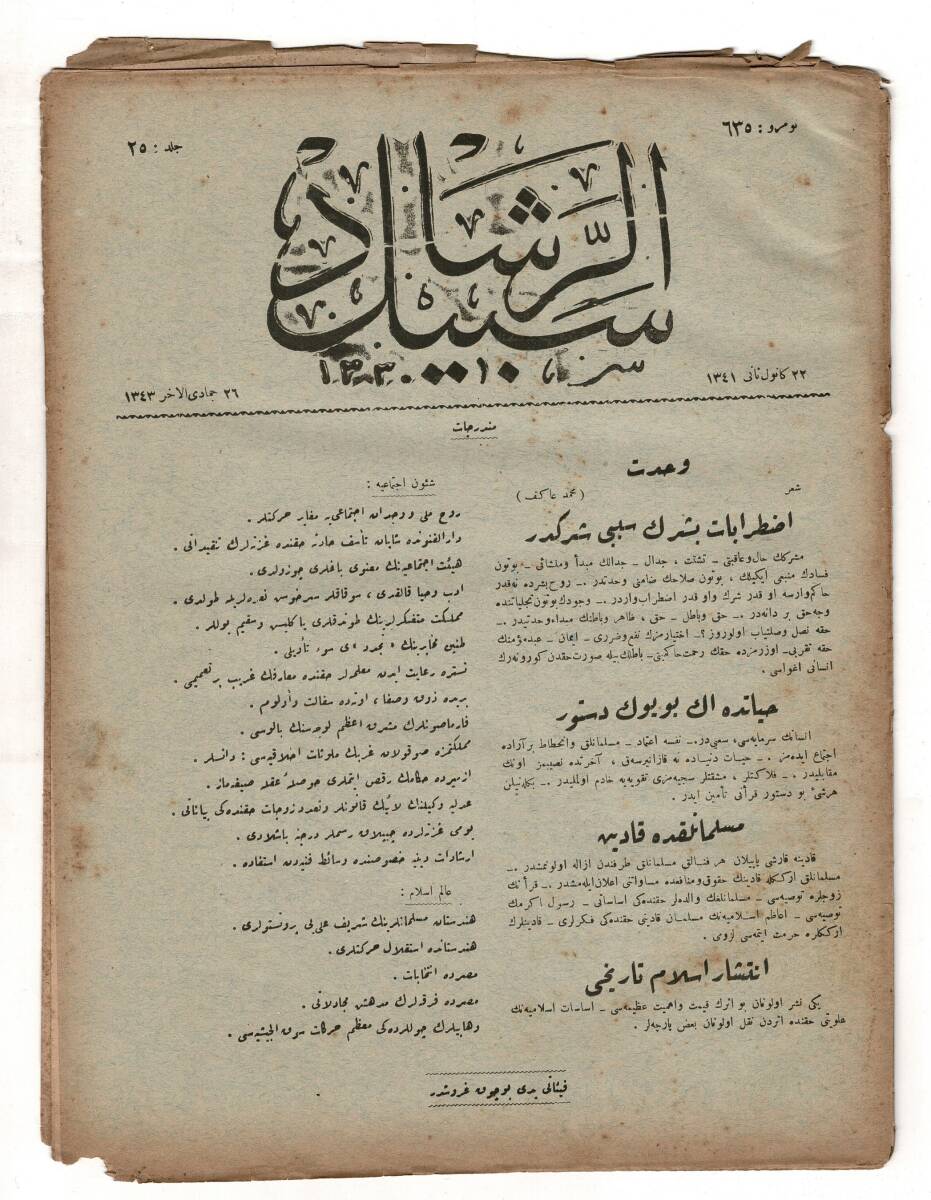 نومرو : ٦٣٥
جلد : ٢٥
سبيل الرشاد
١٣٣٠
٢٢ كانون ثانى ١٣٤١
٢٦ جمادى الاخر ١٣٤٣
مندرجات
وحدت
شعر (محمد عاكف)
اضطرابات بشرك سببى شركدر
مشركك حال وعاقبتى ـ تشتت ، جدال ـ جدالك مبدأ ومنشائى ـ بوتون
فسادك منبعى ايكيلك ، بوتون صلاحك ضامنى وحدتدر .ـ روح بشرده نه قدر
حاكم وارسه او قدر شرك واو قدر اضطراب واردر .ـ وجودك بوتون تجلياتنده
وجه حق بر دانه در .ـ حق وباطل ـ حق ، ظاهر وباطنك مبداء وحدتيدر .ـ
حقه نصل وصلتياب اولوروز ؟ـ اختيارمزك نفع وضررى ـ ايمان ـ عبد مؤمنك
حقه تقربى ـ اوزرمزده حقك رحمت حاكميتى ـ باطلك بيله صورت حقدن كورونه رك
انسانى اغواسى .
حياتده اك بويوك دستور
انسانك سرمايه سى، سعيى در .ـ نفسه اعتماد ـ مسلمانلق وانحطاط بر آراده
اجتماع ايده مز .ـ حيات دنياده نه قازانيرسه ق ، آخرتده نصيبمز اونك
مقابليدر .ـ فلاكتلر ، مشقتلر سجيه مزى تقويه يه خادم اولمليدر .ـ
هرشئ بو دستور قرآنى تأمين ايدر .
مسلمانلقده قادين
قادينه قارشى ياپيلان هر فنالق مسلمانلق طرفندن ازاله اولونمشدر .ـ
مسلمانلق ارككله قادينك حقوق ومنافعده مساواتنى اعلان ايله مشدر .ـ قرآنك
زوجلره توصيه سى ـ مسلمانلغك والده لر حقنده كى اساساتى ـ رسول اكرمك
توصيه سى ـ اعاظم اسلاميه نك مسلمان قادينى حقنده كى فكرلرى ـ قادينلرك
اركك لره حرمت ايتمه سى لزومى .
انتشار اسلام تاريخى
يكى نشر اولونان بو اثرك قيمت واهميت عظيمه سى ـ اساسات اسلاميه نك
علويتى حقنده اثردن نقل اولونان بعض پارچه لر .
شئون اجتماعيه :
روح ملى ووجدان اجتماعى يه مغاير حركتلر .
دار الفنونده شايان تأسف حادثه حقنده غزته لرك تنقيداتى .
هيئت اجتماعيه نك معنوى باغلرى چوزولدى .
ادب وحيا قالقدى ، سوقاقلر سرخوش نعره لريله طولدى .
مملكت متفكرلرينك طوتدقلرى يا كليس وسقيم يوللر .
طنين مخابرينك «مجدد» ى سوء تأويلى .
تستره رعايت ايدن معلملر حقنده معارفك غريب بر تعميمى .
بريده ذوق وصفا ، اوتده سفالت واولوم .
فارماصونلرك مشرق اعظم لوجه سنك بالوسى .
مملكتمزه صوقولان غربك ملوثات اخلاقيه سى : دانسلر .
ازميرده حكامك رقص ايتملرى حوصلۀ عقله صيغه ماز .
عدليه وكيلنك لائيك قانونلر وتعدد زوجات حقنده كى بياناتى .
يومى غزته لرده چيپلاق رسملر درجنه باشلادى .
ارشادات دينيه خصوصنده وسائط فنيه دن استفاده .
عالم اسلام :
هندستان مسلمانلرينك شريف على يى پروتستولرى .
هندستانده استقلال حركتلرى .
مصرده انتخابات .
مصرده فرقه لرك مدهش مجادلاتى .
وهابيلرك چوللرده كى معظم حركات سوق الجيشيه سى .
فيئاتى يدى بوچوق غروشدر